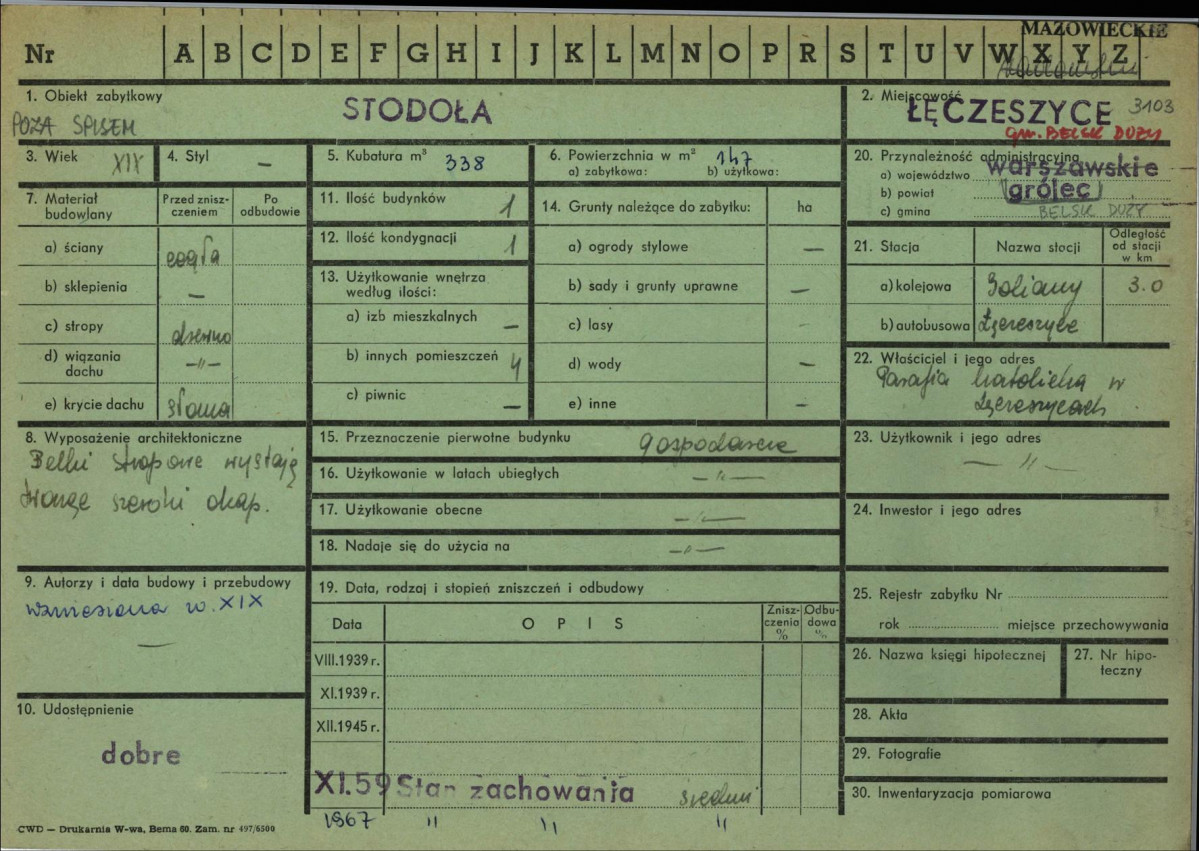 MAZOWIECKIE
Nr A B C D E F G H I J K L M N O P R S T U V W X Y Z
1. Obiekt zabytkowy
STODOŁA
POZA SPISEM
2. Miejscowość
ŁĘCZESZYCE 3103
gm. BELSK DUŻY
3. Wiek XIX
4. Styl —
5. Kubatura m³ 338
6. Powierzchnia w m² 147
a) zabytkowa: b) użytkowa:
20. Przynależność administracyjna
a) województwo warszawskie
b) powiat grójec
c) gmina BELSK DUŻY
7. Materiał budowlany
Przed zniszczeniem
Po odbudowie
a) ściany cegła
b) sklepienia —
c) stropy drewno
d) wiązania dachu —„—
e) krycie dachu słoma
11. Ilość budynków 1
12. Ilość kondygnacji 1
13. Użytkowanie wnętrza według ilości:
a) izb mieszkalnych —
b) innych pomieszczeń 4
c) piwnic —
14. Grunty należące do zabytku: ha
a) ogrody stylowe —
b) sady i grunty uprawne —
c) lasy -
d) wody —
e) inne —
21. Stacja
Nazwa stacji
Odległość od stacji w km
a) kolejowa 3.0
b) autobusowa Łęczeszyce
22. Właściciel i jego adres
Parafia katolicka w
Łęczeszycach
8. Wyposażenie architektoniczne
Belki stropowe wystają
tworząc szeroki okap.
15. Przeznaczenie pierwotne budynku gospodarcze
16. Użytkowanie w latach ubiegłych —„—
17. Użytkowanie obecne —„—
18. Nadaje się do użycia na —„—
23. Użytkownik i jego adres
— „ —
24. Inwestor i jego adres
9. Autorzy i data budowy i przebudowy
wzniesiona w. XIX
—
19. Data, rodzaj i stopień zniszczeń i odbudowy
Data
O P I S
Zniszczenia %
Odbudowa %
VIII.1939 r.
XI.1939 r.
XII.1945 r.
XI.59 Stan zachowania średni
1967 „ „ „
10. Udostępnienie
dobre
25. Rejestr zabytku Nr
rok miejsce przechowywania
26. Nazwa księgi hipotecznej
27. Nr hipoteczny
28. Akta
29. Fotografie
30. Inwentaryzacja pomiarowa
CWD — Drukarnia W-wa, Bema 60. Zam. nr 497/6500